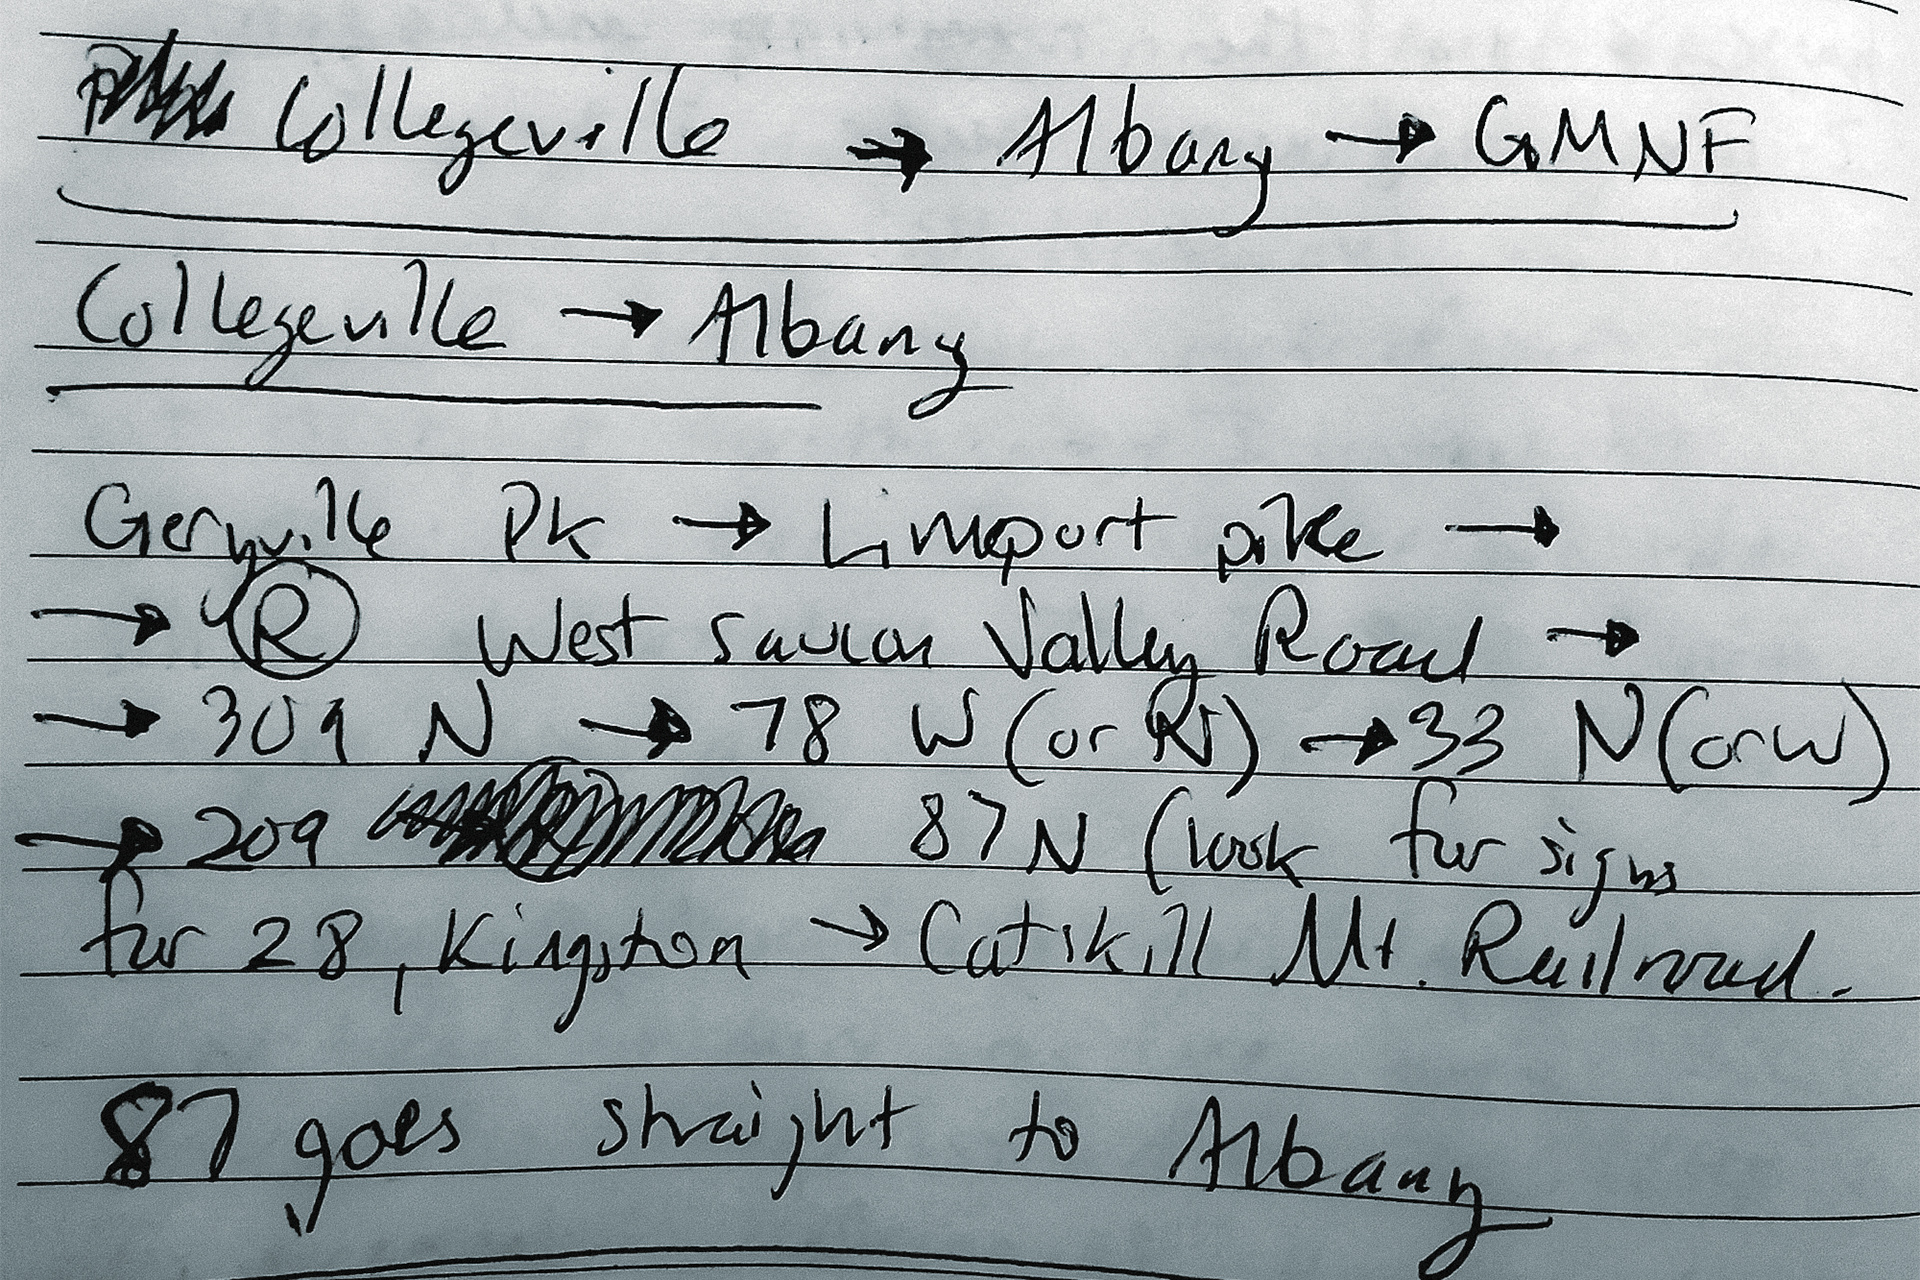 Collegeville → Albany → GMNF
Collegeville → Albany
Geryville Pk → Limeport pike →
→ R West Saucon Valley Road →
→ 309 N → 78 W (or N) → 33 N (or W)
→ 209 87 N (look for signs
for 28, Kingston → Catskill Mt. Railroad.
87 goes straight to Albany